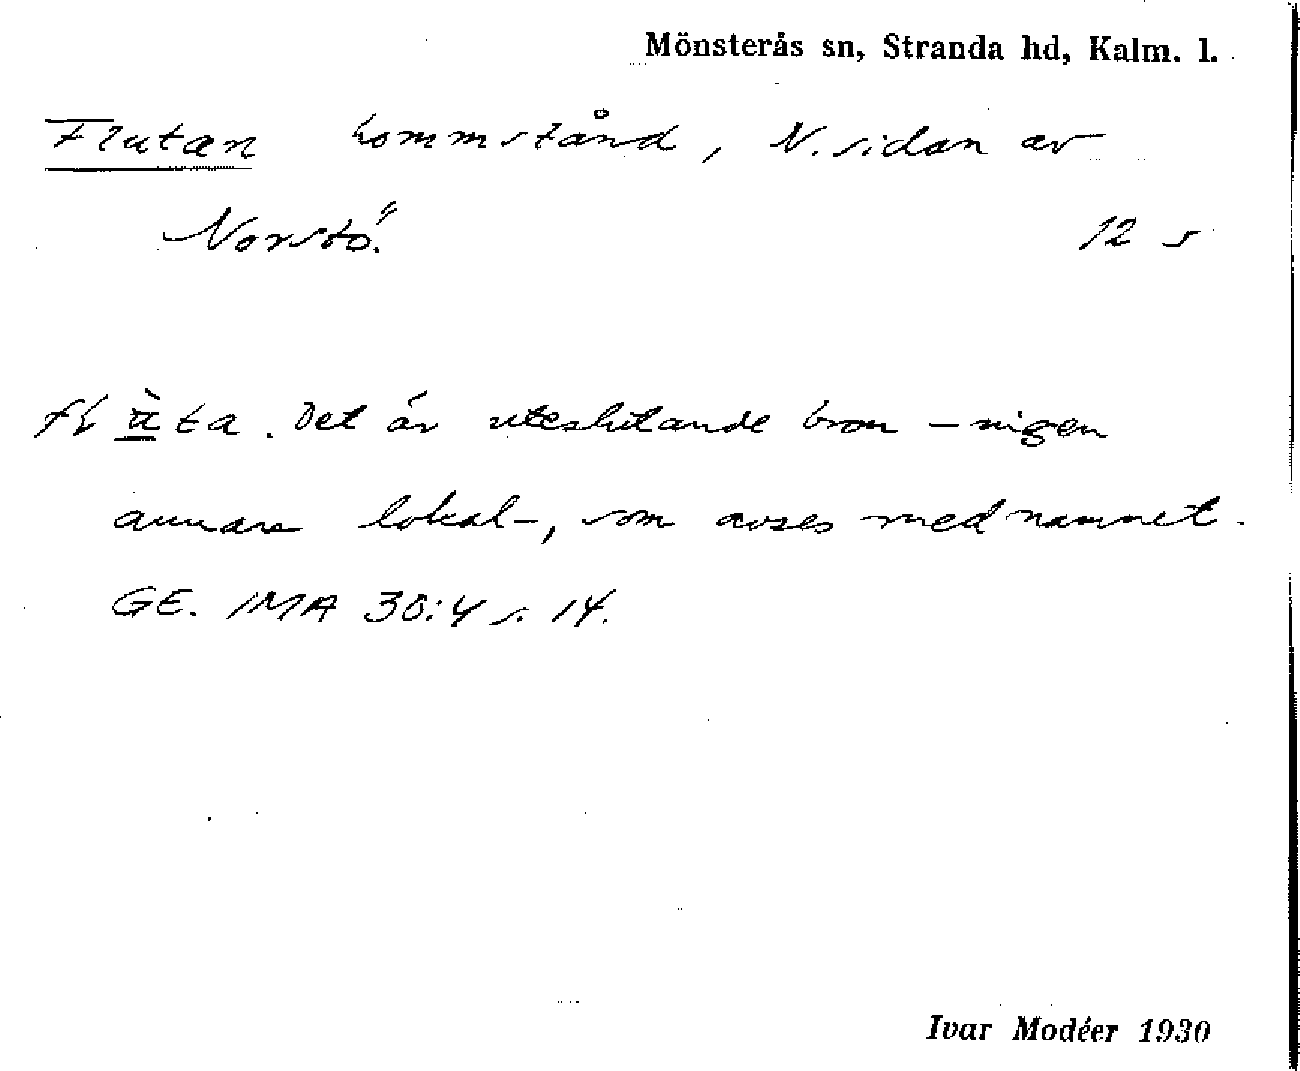 Mönsterås sn, Stranda hd, Kalm. l.
Flutan hommstånd, N. sidan av
Norstö. 12 s
flùta. Det är uteslutande bron – ingen
annan lokal –, som avses med namnet.
GE. IMA 30:4 s. 14.
Ivar Modéer 1930